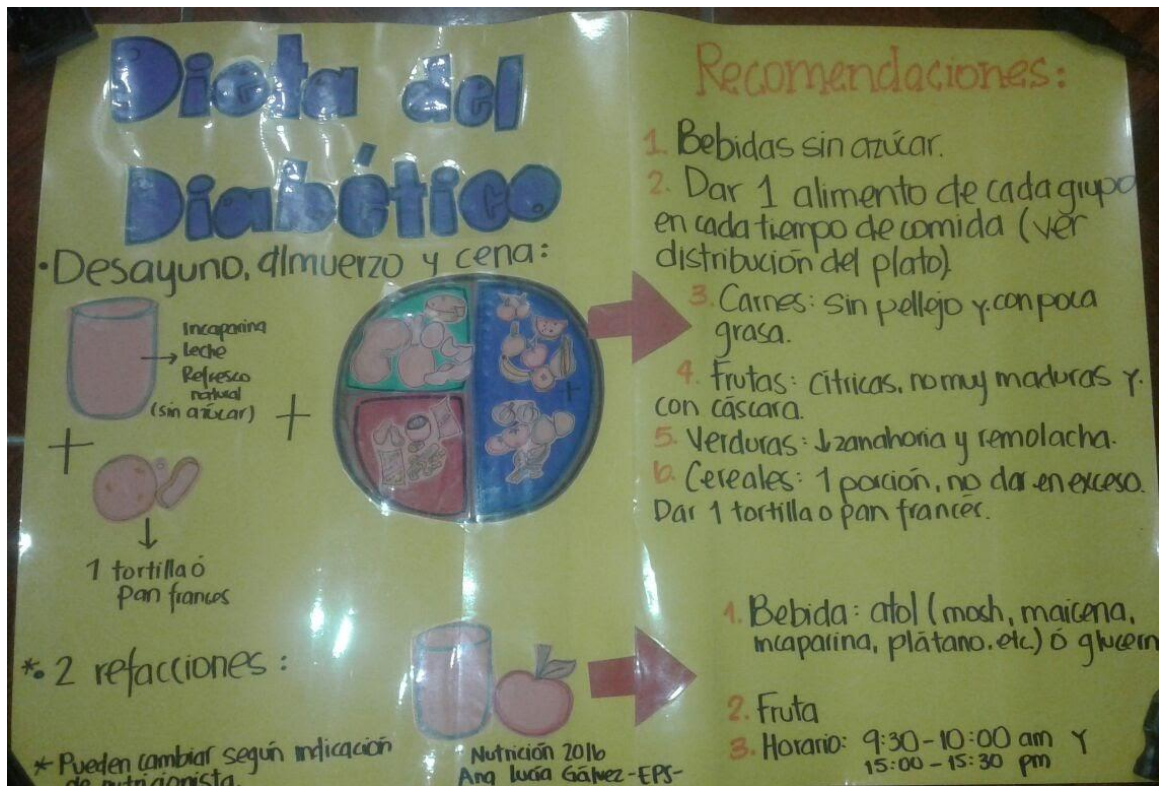 Dieta del
Diabético
• Desayuno, almuerzo y cena:
Incaparina
Leche
Refresco
natural
(sin azúcar)
+
+
1 tortilla ó
Pan frances
*• 2 refacciones:
* Pueden cambiar según indicación
de nutricionista.
Nutrición 2016
Ana Lucía Gálvez -EPS-
Recomendaciones:
1. Bebidas sin azúcar.
2. Dar 1 alimento de cada grupo
en cada tiempo de comida (ver
distribución del plato).
3. Carnes: sin pellejo y con poca
grasa.
4. Frutas: cítricas, no muy maduras y
con cáscara.
5. Verduras: ↓zanahoria y remolacha.
6. Cereales: 1 porción, no dar en exceso.
Dar 1 tortilla o pan francés.
1. Bebida: atol (mosh, maicena,
incaparina, plátano, etc.) ó glucern
2. Fruta
3. Horario: 9:30 - 10:00 am y
15:00 - 15:30 pm